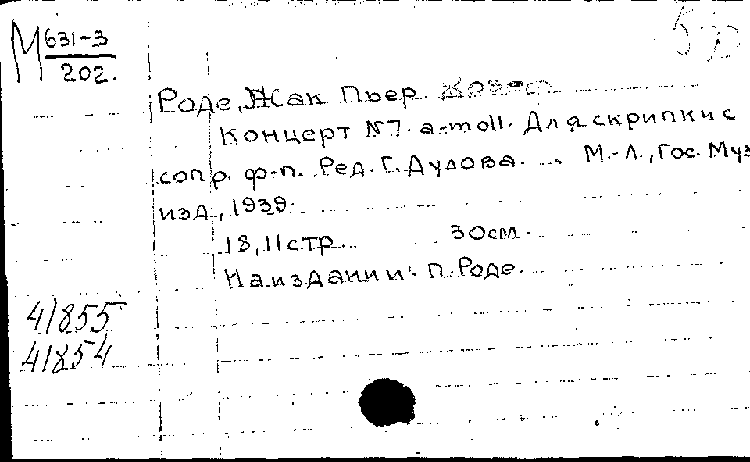 М 631-3
202.
Роде, Жак Пьер.
Концерт №7. a-moll. Для скрипки с
сопр. ф-п. Ред. Г. Дулова. ... М.-Л., Гос. Муз
изд, 1939.
18, 11 стр. 30 см.
На издании: П. Роде.
41855
41854